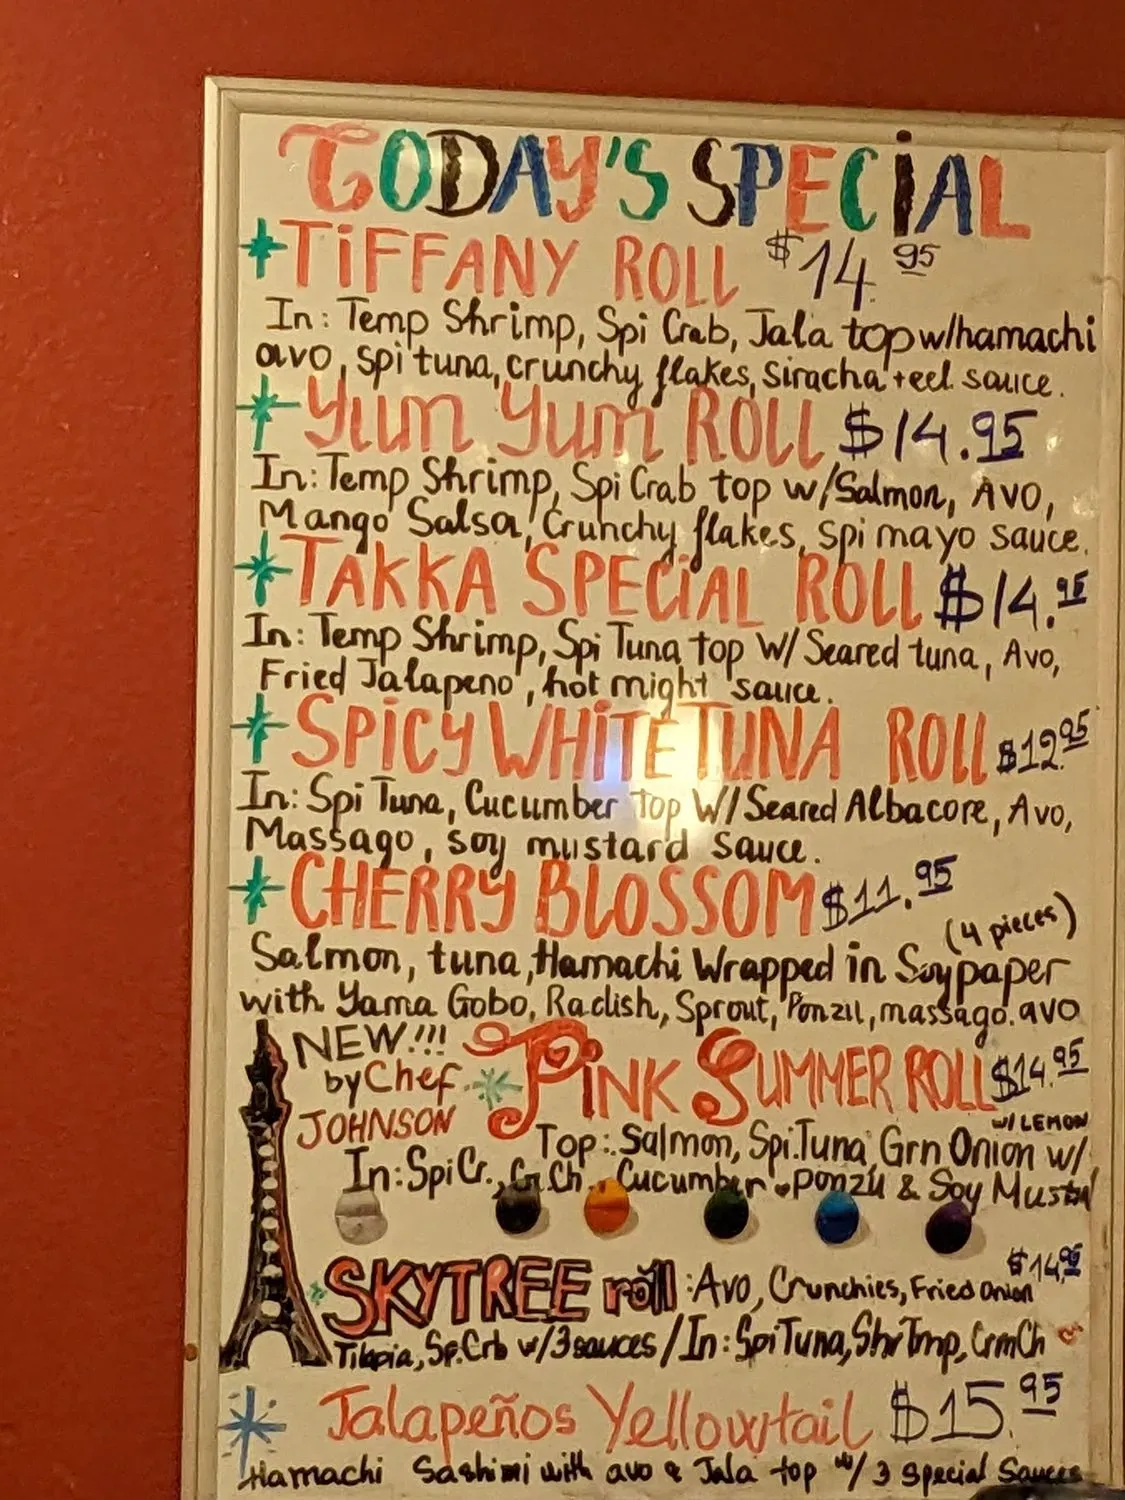 TODAY'S SPECIAL
TiFFANY ROLL $14.95
In: Temp Shrimp, Spi Crab, Jala top w/hamachi
avo, spi tuna, crunchy flakes, siracha + eel sauce.
Yum Yum ROLL $14.95
In: Temp Shrimp, Spi Crab top w/Salmon, AVO,
Mango Salsa, Crunchy flakes, spi mayo sauce.
TAKKA SPECiAL ROLL $14.95
In: Temp Shrimp, Spi Tuna top W/ Seared tuna, Avo,
Fried Jalapeno, hot might sauce.
SPiCY WHiTE TUNA ROLL $12.95
In: Spi Tuna, Cucumber top W/Seared Albacore, Avo,
Massago, soy mustard sauce.
CHERRY BLOSSOM $11.95
(4 pieces)
Salmon, tuna, Hamachi Wrapped in Soypaper
with Yama Gobo, Radish, Sprout, Ponzu, massago. avo
NEW!!!
by Chef
JOHNSON
PiNK SUMMER ROLL $14.95
w/ LEMON
Top: Salmon, Spi.Tuna, Grn Onion w/
In: Spi Cr., Cr.Ch., Cucumber ponzu & Soy Mustrd
SKYTREE roll: Avo, Crunchies, Fried onion $14.95
Tilapia, Sp.Crb w/3 sauces / In: Spi Tuna, Shr Tmp, CrmCh
Jalapeños Yellowtail $15.95
Hamachi Sashimi with avo & Jala top w/ 3 special Sauces